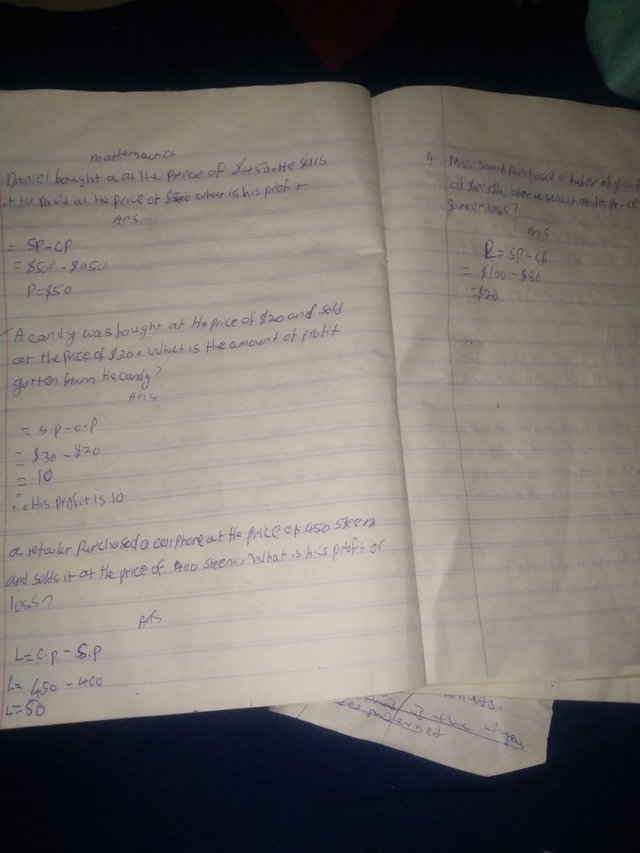 mathematics
Daniel bought a at the price of $450. He sells
it to David at the price of $500 what is his profit
Ans
= SP-CP
= $500 - $450
P=$50
A candy was bought at the price of $20 and sold
at the price of $30. What is the amount of profit
gotten from the candy?
Ans
= S.P-C.P
= $30 - $20
= 10
∴ His profit is 10
a retailer Purchased a cell phone at the price of 450 steem
and solds it at the price of 400 steem. What is his profit or
loss?
Ans
L= C.P - S.P
L= 450 - 400
L= 50
4 Miss Sarah Purchased a tuber of
of later at the price
gain or loss?
Ans
P = SP - CP
= $100 - $80
= $20
is the